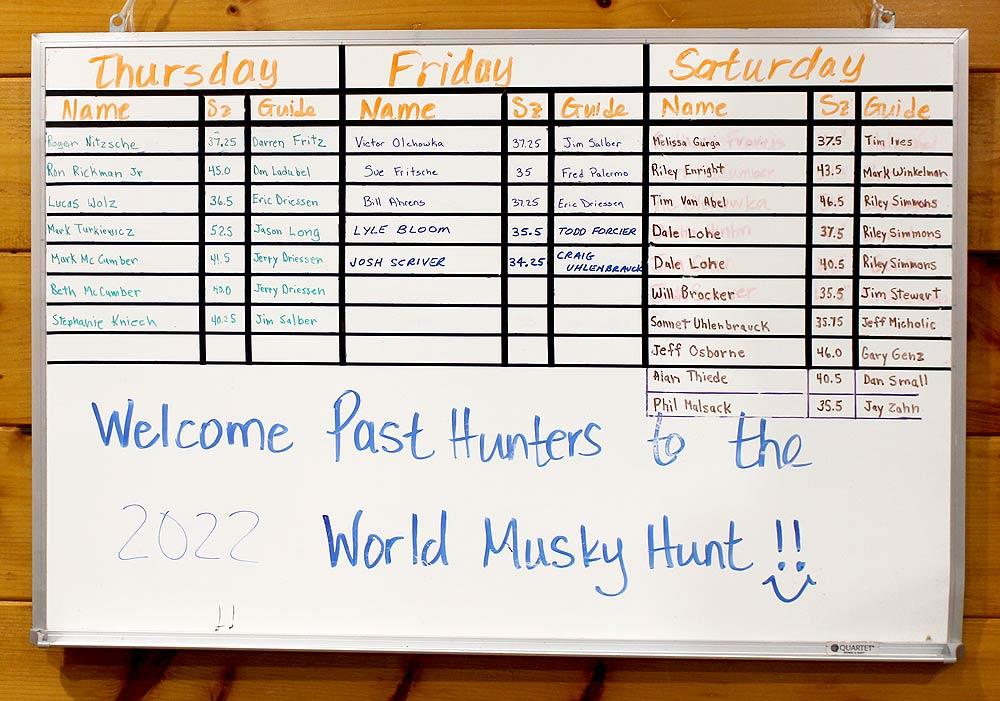 Thursday Friday Saturday
Name Sz Guide Name Sz Guide Name Sz Guide
Roger Nitzsche 37.25 Darren Fritz Victor Olchowka 37.25 Jim Salber Melissa Gurga 37.5 Tim Ives
Ron Rickman Jr 45.0 Don Ladubel Sue Fritsche 35 Fred Palermo Riley Enright 43.5 Mark Winkelman
Lucas Wolz 36.5 Eric Driessen Bill Ahrens 37.25 Eric Driessen Tim Van Abel 46.5 Riley Simmons
Mark Turkiewicz 52.5 Jason Long LYLE BLOOM 35.5 TODD FORCIER Dale Lohe 37.5 Riley Simmons
Mark McCumber 41.5 Jerry Driessen JOSH SCRIVER 34.25 CRAIG UHLENBRAUCK Dale Lohe 40.5 Riley Simmons
Beth McCumber Jerry Driessen Will Brocker 35.5 Jim Stewart
Stephanie Kniech 40.25 Jim Salber Sonnet Uhlenbrauck 35.75 Jeff Micholic
Jeff Osborne 46.0 Gary Genz
Alan Thiede 40.5 Dan Small
Phil Malsack 35.5 Jay Zahn
Welcome Past Hunters to the
2022 World Musky Hunt!!
QUARTET